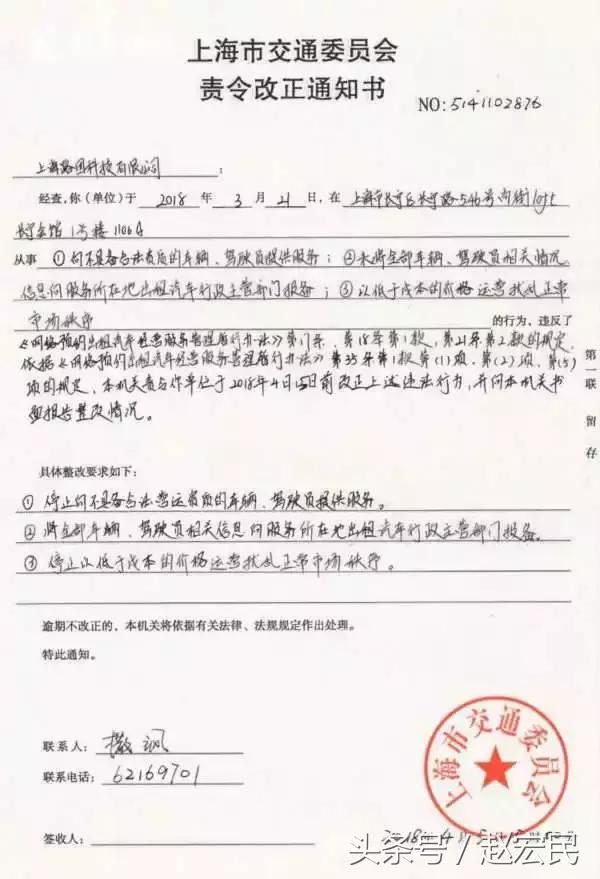 上海市交通委员会
责令改正通知书
NO: 5141102876
上海路团科技有限公司：
经查，你（单位）于 2018 年 3 月 21 日，在 上海市长宁区长宁路546号尚街loft
长宁会馆 1号楼 1106室
从事 ①向不具备合法资质的车辆、驾驶员提供服务；②未将全部车辆、驾驶员相关情况
信息向服务所在地出租汽车行政主管部门报备；③以低于成本的价格运营扰乱正常
市场秩序 的行为，违反了
《网络预约出租汽车经营服务管理暂行办法》第17条、第18条第1款、第21条第2款的规定，
依据《网络预约出租汽车经营服务管理暂行办法》第35条第1款第(1)项、第(2)项、第(5)
项的规定，本机关责令你单位于2018年4月15日前改正上述违法行为，并向本机关书
面报告整改情况。
第一联 留存
具体整改要求如下：
①停止向不具备合法营运资质的车辆、驾驶员提供服务。
②将全部车辆、驾驶员相关信息向服务所在地出租汽车行政主管部门报备。
③停止以低于成本的价格运营扰乱正常市场秩序。
逾期不改正的，本机关将依据有关法律、法规规定作出处理。
特此通知。
联系人：
联系电话：62169701
上海市交通委员会
签收人：
2018年4月
头条号／赵宏民